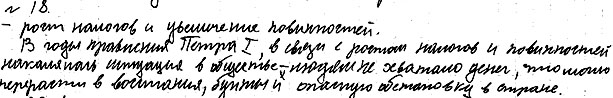 № 18.
- рост налогов и увеличение повинностей.
В годы правления Петра I, в связи с ростом налогов и повинностей
накалялась ситуация в обществе - людям не хватало денег, что могло
перерасти в восстания, бунты и опасную обстановку в стране.